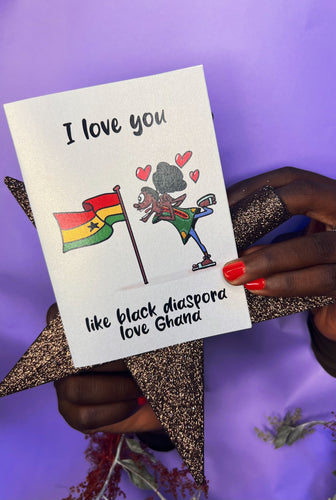 I love you
like black diaspora
love Ghana